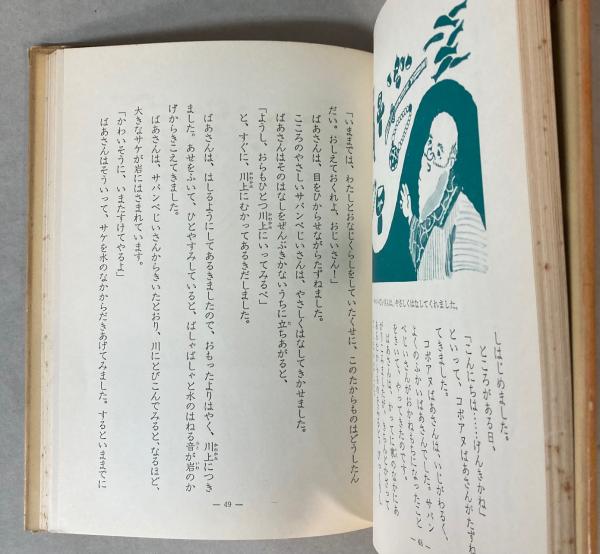 じいさんは、やさしくはなしてくれました。
しはじめました。
ところがある日、
「こんにちは……げんきかね」
といって、コポアヌばあさんがたずね
てきました。
コポアヌばあさんは、いじがわるく、
よくのふかいばあさんでした。サパン
ペじいさんがおかねもちになったこと
をきいて、やってきたのです。
ばあさんは、かってに家のなかにあ
「いままでは、わたしとおなじくらしをしていたくせに、このたからものはどうしたん
だい。おしえておくれよ、おじいさん！」
ばあさんは、目をひからせながらたずねました。
こころのやさしいサパンペじいさんは、やさしくはなしてきかせました。
ばあさんはそのはなしをぜんぶきかないうちに立ちあがると、
「ようし、おらもひとつ川上にいってみるべ」
と、すぐに、川上にむかってあるきだしました。
ばあさんは、はしるようにしてあるきましたので、おもったよりはやく、川上につき
ました。あせをふいて、ひとやすみしていると、ばしゃばしゃと水のはねる音が岩のか
げからきこえてきました。
ばあさんは、サパンペじいさんからきいたとおり、川にとびこんでみると、なるほど、
大きなサケが岩にはさまれています。
「かわいそうに、いまたすけてやるよ」
ばあさんはそういって、サケを水のなかからだきあげてみました。するといままでに
— 49 —